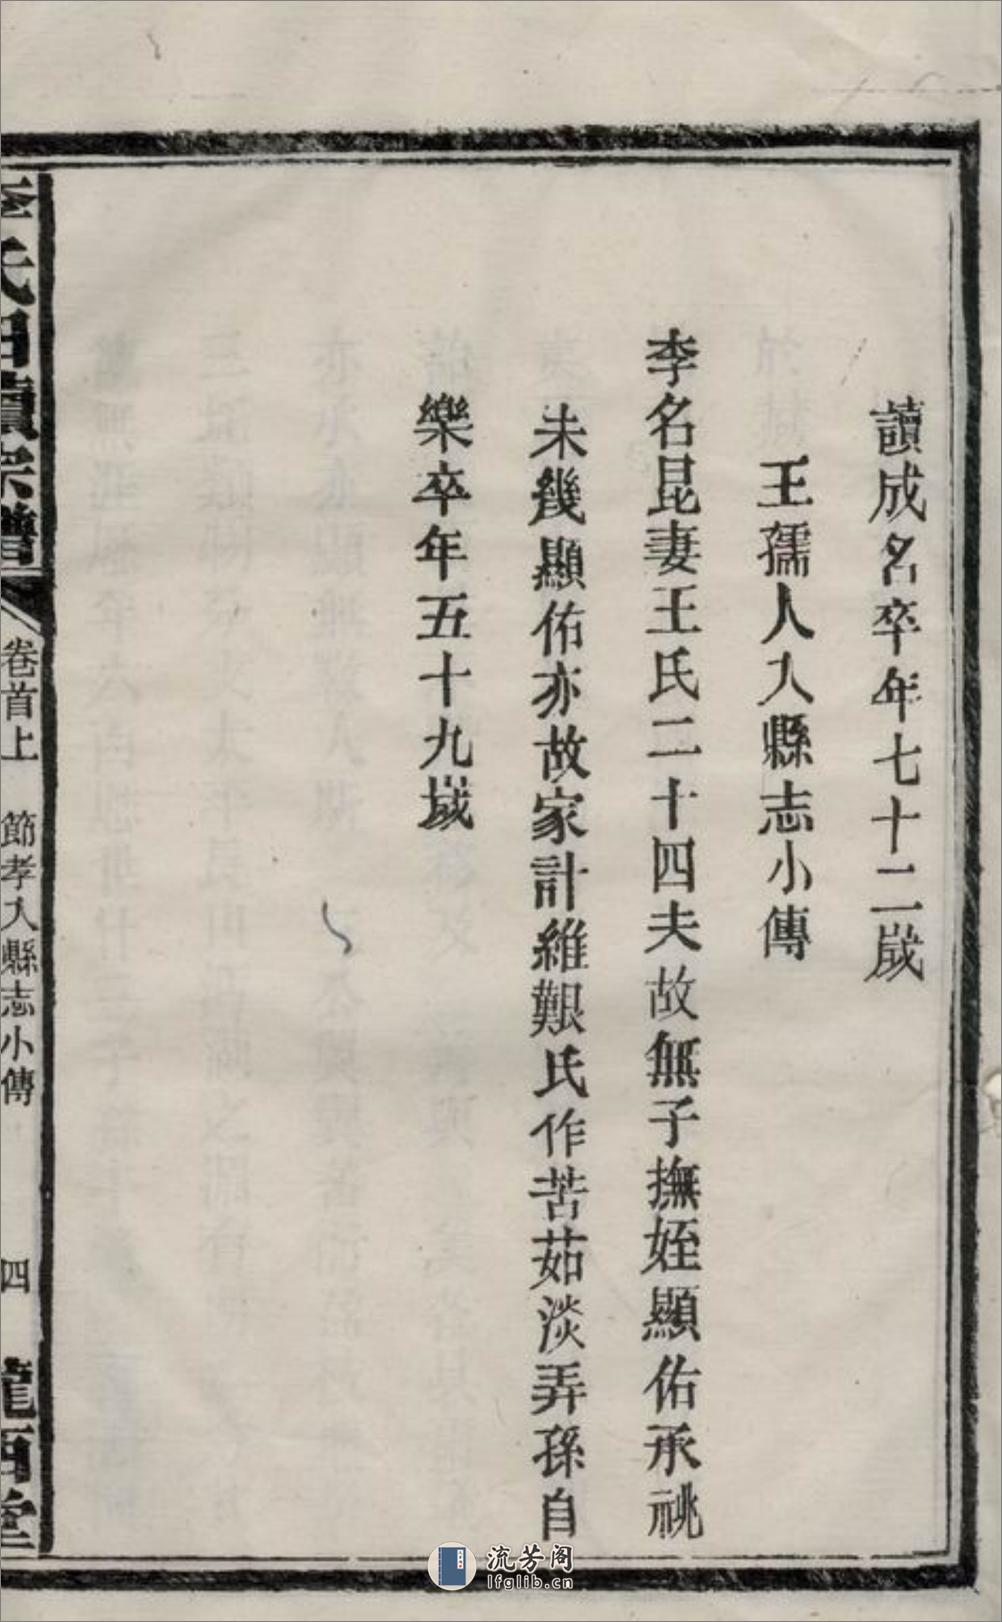 讀成名卒年七十二歲
王孺人入縣志小傳
李名昆妻王氏二十四夫故無子撫姪顯佑承祧
未幾顯佑亦故家計維艱氏作苦茹淡弄孫自
樂卒年五十九歲
李氏四續宗譜 卷首上 節孝入縣志小傳 四 隴西堂
流芳阁
lfglib.cn